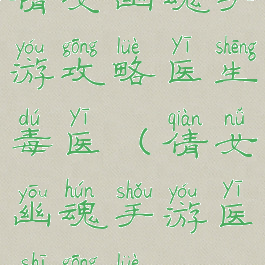 倩女幽魂手
yóu gōng lüè yī shēng
游攻略医生
dú yī qiàn nǚ
毒医（倩女
yōu hún shǒu yóu yī
幽魂手游医
shī gōng lüè